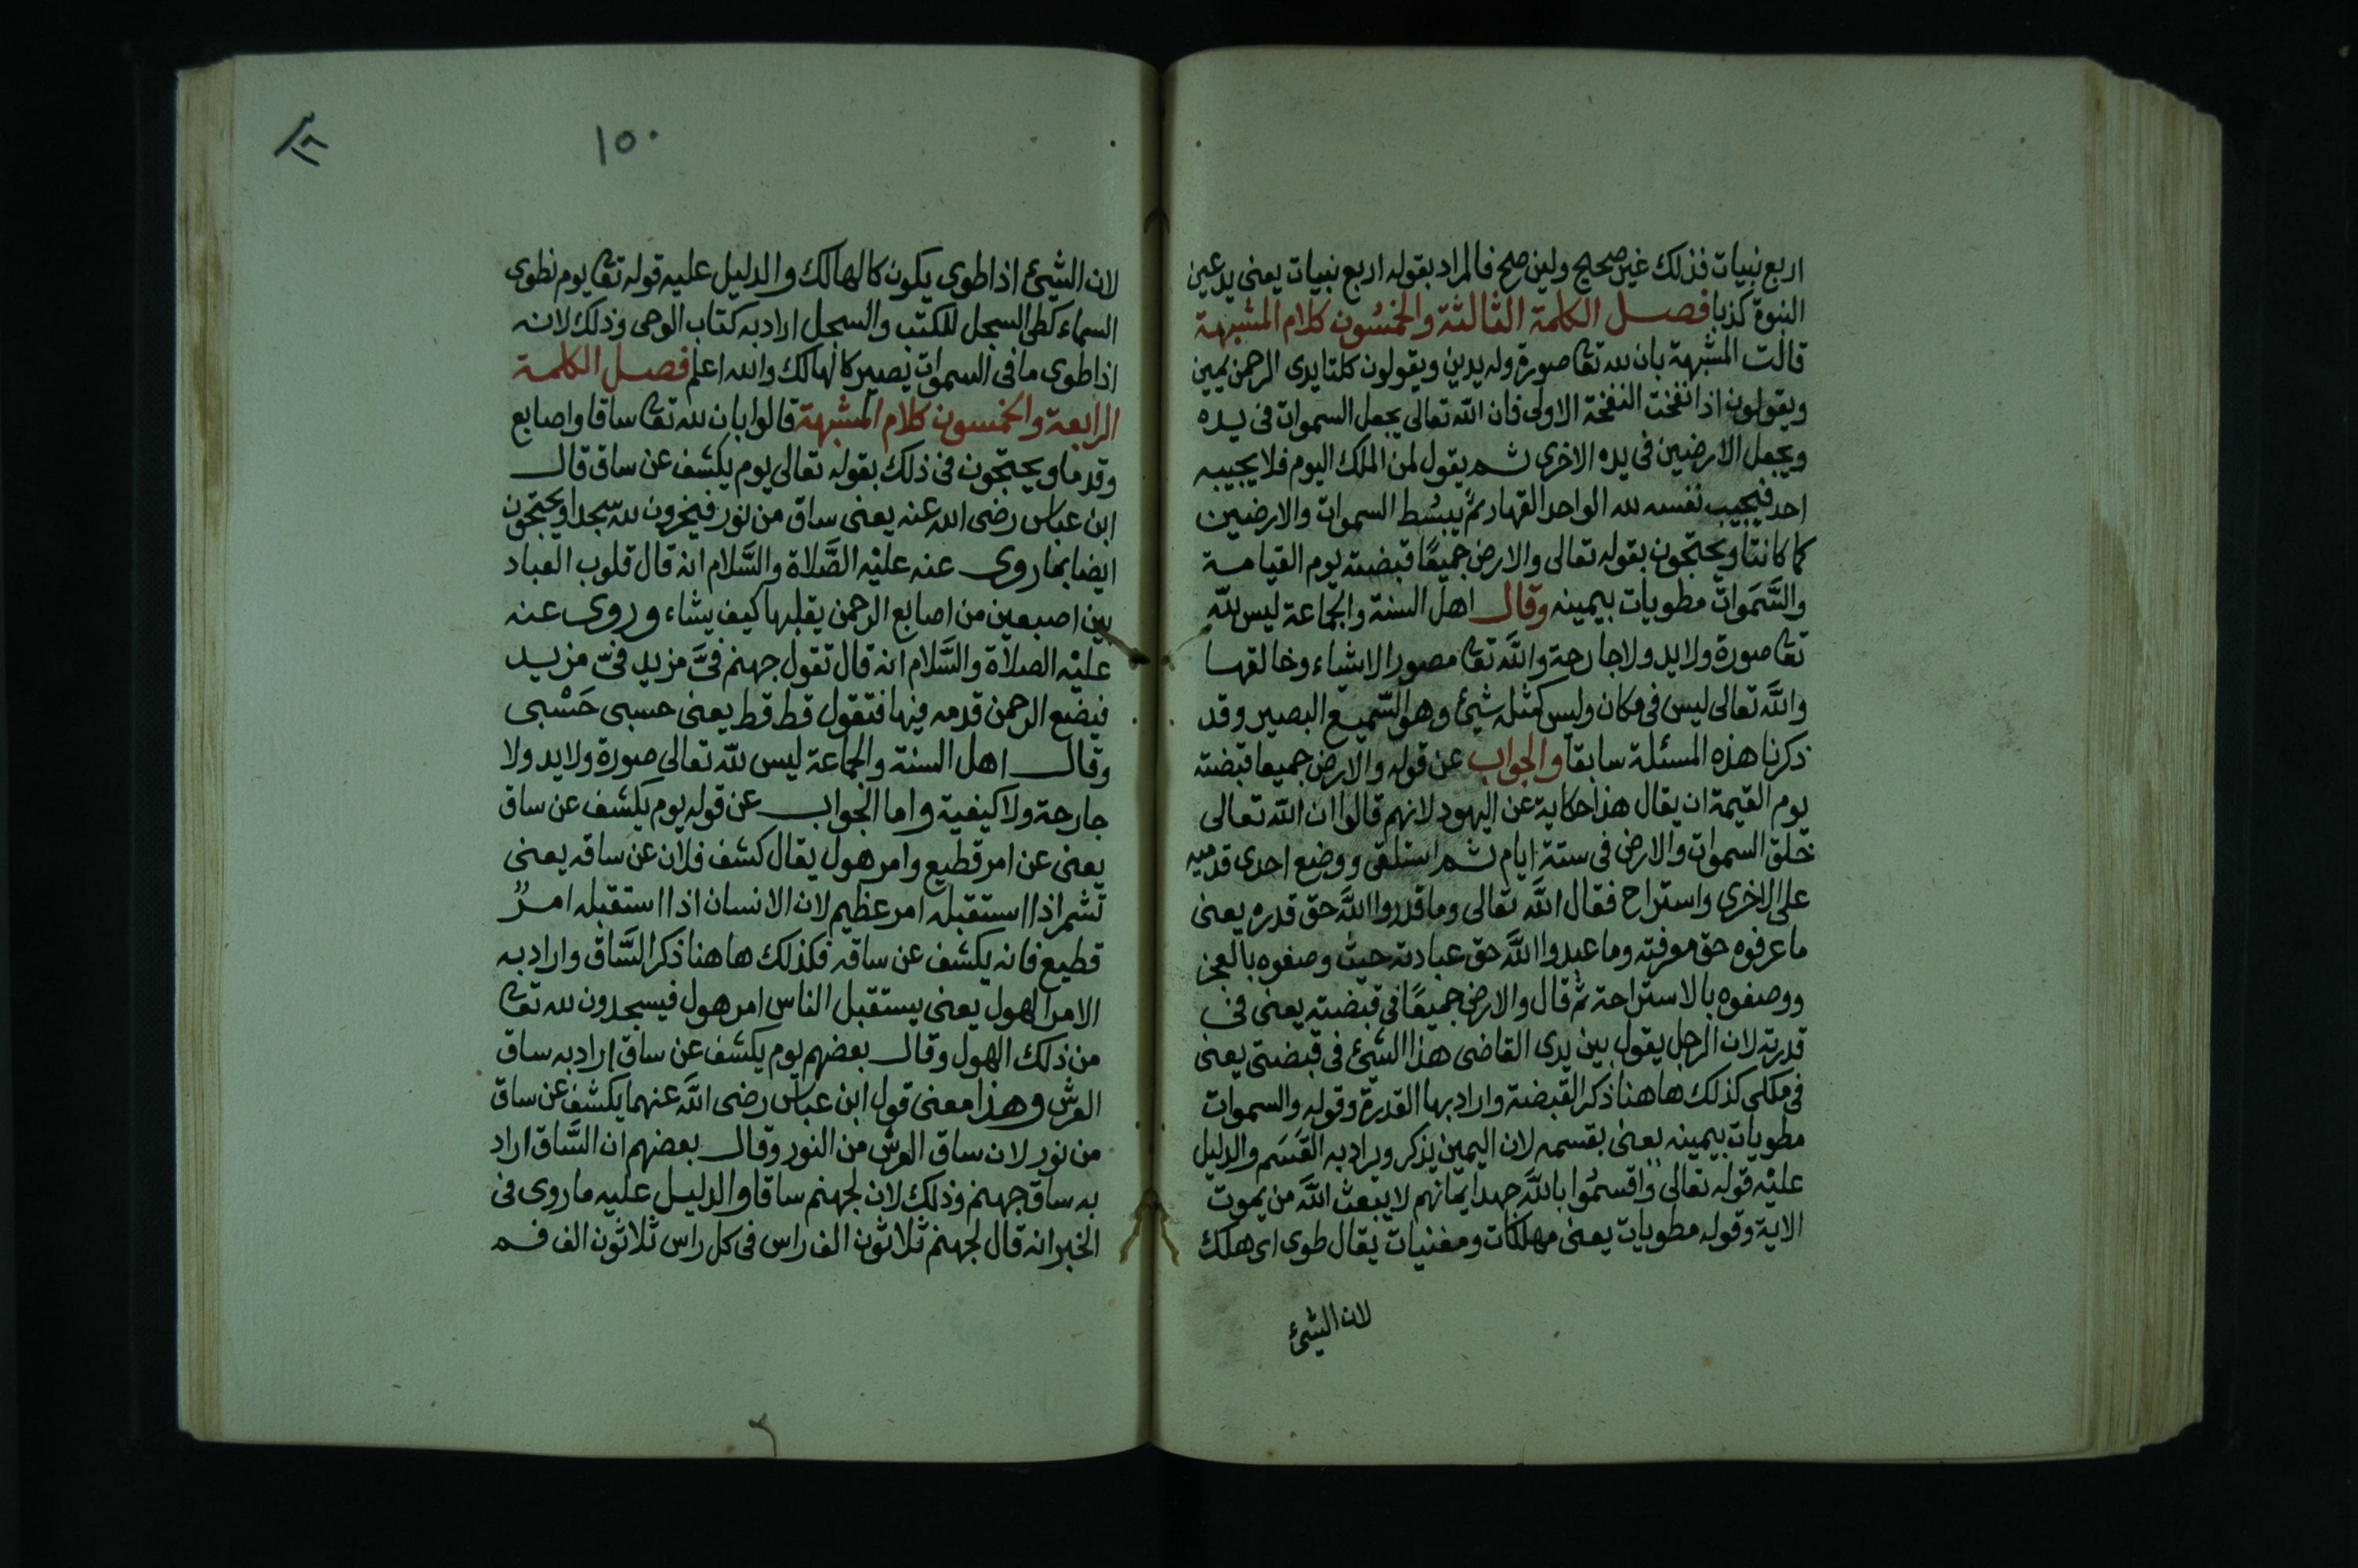 اربع نبيات فذلك غير صحيح ولين صح فالمراد بقوله اربع نبيات يعنى يدعين
النبوة كذبا فصل الكلمة الثالثة والخمسون كلام المشبهة
قالت المشبهة بان لله تعا صورة وله يدين ويقولون كلتا يدى الرحمن يمين
ويقولون اذا نفخت النفخة الاولى فان الله تعالى يجعل السموات فى يده
ويجعل الارضين فى يده الاخرى ثم يقول لمن الملك اليوم فلا يجيبه
احد فيجيب نفسه لله الواحد القهار ثم يبسط السموات والارضين
كما كانتا ويحتجون بقوله تعالى والارض جميعًا قبضته يوم القيامة
والسَّمَوات مطويات بيمينه وقال اهل السنة والجماعة ليس لله
تعا صورة ولا يد ولا جارحة والله تعا مصور الاشياء وخالقها
والله تعالى ليس فى مكان وليس كمثله شيئ وهو السَّميع البصير وقد
ذكرنا هذه المسئلة سابقا والجواب عن قوله والارض جميعا قبضته
يوم القيمة ان يقال هذا حكاية عن اليهود لانهم قالوا ان الله تعالى
خلق السموات والارض فى ستة ايام ثم استلقى ووضع احدى قدميه
على الاخرى واستراح فقال الله تعالى وما قدروا الله حق قدره يعنى
ما عرفوه حق معرفته وما عبدوا الله حق عبادته حيث وصفوه بالعجز
ووصفوه بالاستراحة ثم قال والارض جميعًا فى قبضته يعنى فى
قدرته لان الرجل يقول بين يدى القاضى هذا الشيئ فى قبضتى يعنى
فى ملكى كذلك هاهنا ذكر القبضة واراد بها القدرة وقوله والسموات
مطويات بيمينه يعنى بقسمه لان اليمين يذكر ويراد به القَسَم والدليل
عليْه قوله تعالى واقسمُوا بالله جهد ايمانهم لا يبعث الله من يموت
الاية وقوله مطويات يعنى مهلكات ومفنيات يقال طوى اى هلك
لان الشيئ
١٥٠
لان الشيئ اذا طوى يكون كالهالك والدليل عليه قوله تعا يوم نطوى
السماء كطى السجل للكتب والسجل اراد به كتاب الوحى وذلك لانه
اذا طوى ما فى السموات يصير كالهالك والله اعلم فصل الكلمة
الرابعة والخمسون كلام المشبهة قالوا بان لله تعا ساقا واصابع
وقدما ويحتجون فى ذلك بقوله تعالى يوم يكشف عن ساق قال
ابن عباس رضى الله عنه يعنى ساق من نور فيخرون لله سجدا ويحتجون
ايضا بما روى عنه عليْه الصَّلاة والسَّلام انه قال قلوب العباد
بين اصبعين من اصابع الرحمن يقلبها كيف يشاء وروى عنه
عليْه الصلاة والسَّلام انه قال تقول جهنم فىَّ مزيد فىَّ مزيد
فيضع الرحمن قدمه فيها فتقول قط قط يعنى حسبى حَسْبى
وقال اهل السنة والجماعة ليس لله تعالى صورة ولا يد ولا
جارحة ولا كيفية واما الجواب عن قوله يوم يكشف عن ساق
يعنى عن امر قطيع وامر هول يقال كشف فلان عن ساقه يعنى
تشمر اذا استقبله امر عظيم لان الانسان اذا استقبله امرٌ
قطيع فانه يكشف عن ساقه فكذلك هاهنا ذكر السَّاق واراد به
الامر الهول يعنى يستقبل الناس امر هول فيسجدون لله تعا
من ذلك الهول وقال بعضهم يوم يكشف عن ساق اراد به ساق
العرش وهذا معنى قول ابن عباس رضى الله عنهما يكشف عن ساق
من نور لان ساق العرش من النور وقال بعضهم ان السَّاق اراد
به ساق جهنم وذلك لان لجهنم ساقا والدليل عليه ما روى فى
الخبر انه قال لجهنم ثلاثون الف راس فى كل راس ثلاثون الف فم